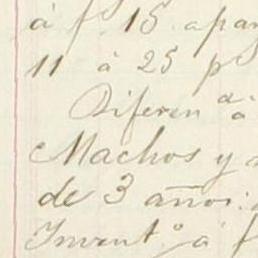 á f. 15 apar
11 á 25 p.s
Diferen.a á
Machos y
de 3 años:
Invent.o á f